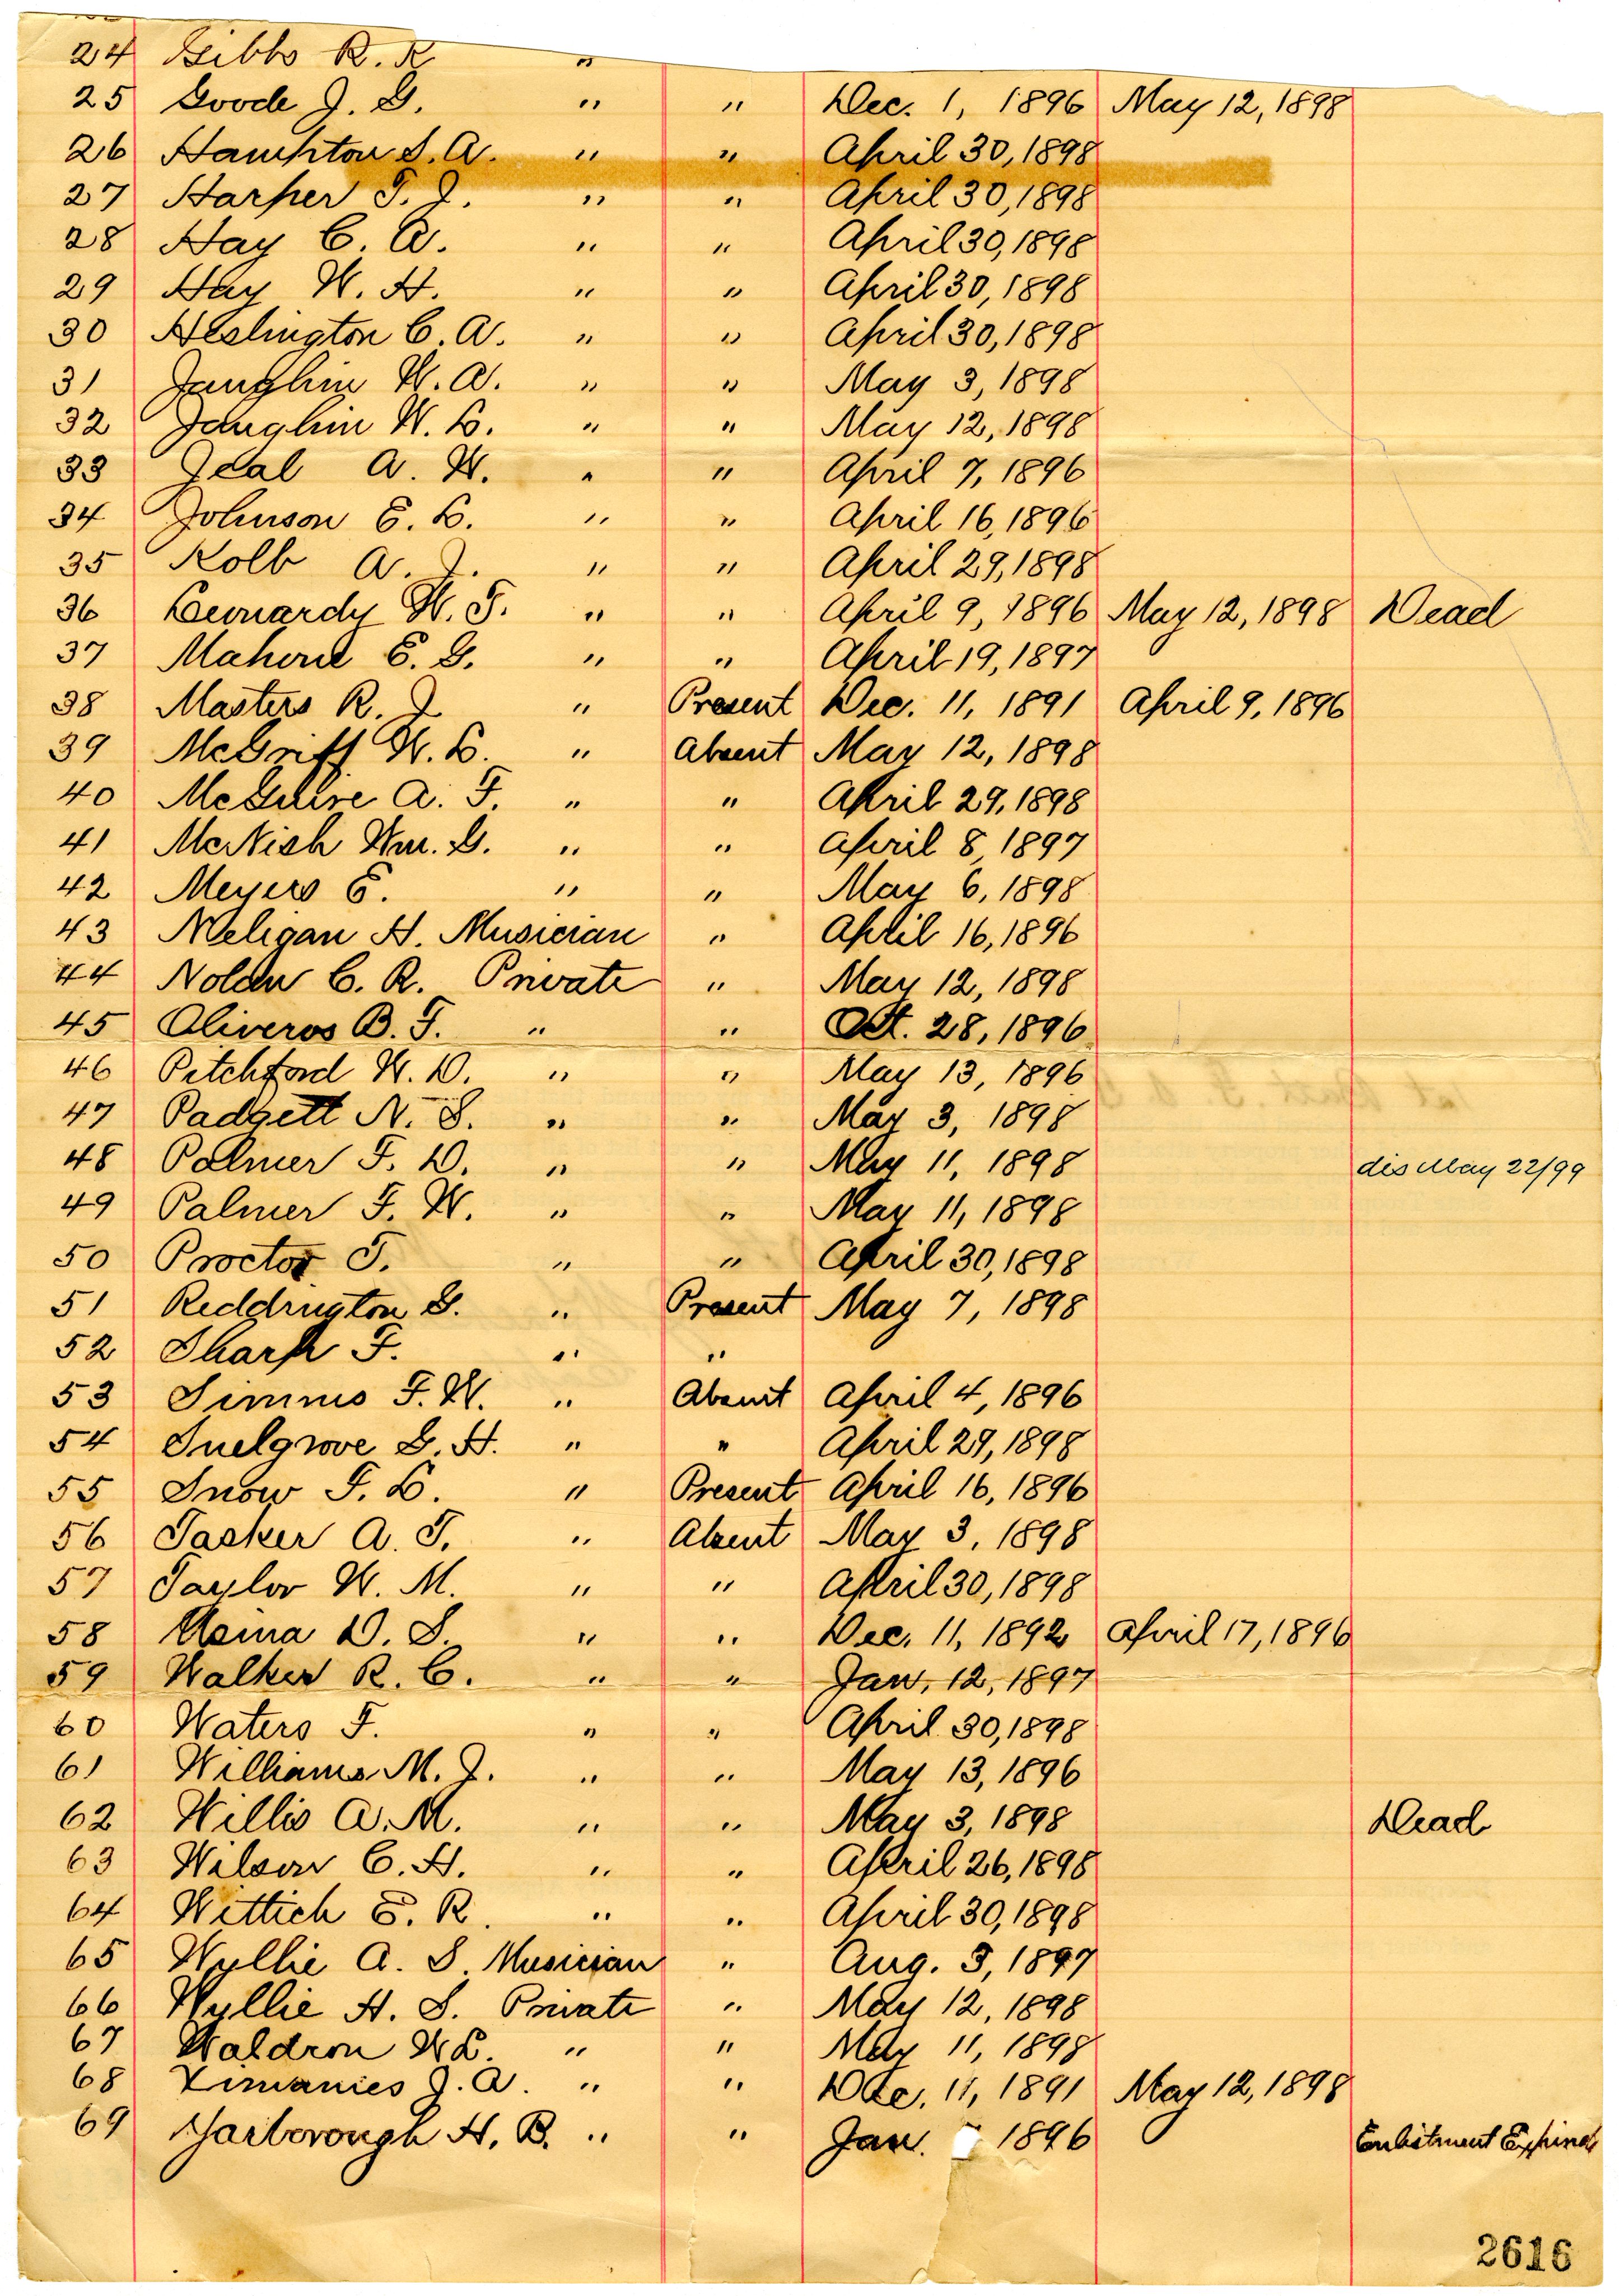 24 Gibbs R. K. "
25 Goode J. G. " " Dec. 1, 1896 May 12, 1898
26 Hampton S. A. " " April 30, 1898
27 Harper T. J. " " April 30, 1898
28 Hay C. A. " " April 30, 1898
29 Hay W. H. " " April 30, 1898
30 Heslington C. A. " " April 30, 1898
31 Janghin W. A. " " May 3, 1898
32 Janghin W. L. " " May 12, 1898
33 Jeal A. W. " " April 7, 1896
34 Johnson E. L. " " April 16, 1896
35 Kolb A. J. " " April 29, 1898
36 Leonardy W. T. " " April 9, 1896 May 12, 1898 Dead
37 E. G. " " April 19, 1897
38 Masters R. J. " Present Dec. 11, 1891 April 9, 1896
39 McGriff W. L. " Absent May 12, 1898
40 McGuire A. F. " " April 29, 1898
41 McNish Wm. G. " " April 8, 1897
42 Meyers E. " " May 6, 1898
43 Meligan H. Musician " April 16, 1896
44 Nolan C. R. Private " May 12, 1898
45 Oliveros B. F. " " Oct. 28, 1896
46 Pitchford W. D. " " May 13, 1896
47 Padgett N. S. " " May 3, 1898
48 Palmer F. D. " " May 11, 1898 dis May 22/99
49 Palmer F. W. " " May 11, 1898
50 Proctor T. " " April 30, 1898
51 Reddington G. " Present May 7, 1898
52 Sharp F. " "
53 Simms F. W. " Absent April 4, 1896
54 Snelgrove G. H. " " April 29, 1898
55 Snow F. L. " Present April 16, 1896
56 Tasker A. T. " Absent May 3, 1898
57 Taylor W. M. " " April 30, 1898
58 Usina D. S. " " Dec. 11, 1892 April 17, 1896
59 Walker R. C. " " Jan. 12, 1897
60 Waters F. " " April 30, 1898
61 Williams M. J. " " May 13, 1896
62 Willis A. M. " " May 3, 1898 Dead
63 Wilson C. H. " " April 26, 1898
64 Wittich E. R. " " April 30, 1898
65 Wyllie A. S. Musician " Aug. 3, 1897
66 Wyllie H. S. Private " May 12, 1898
67 Waldron W L. " " May 11, 1898
68 Ximanies J. A. " " Dec. 11, 1891 May 12, 1898
69 Yarborough H. B. " " Jan. 1896 Enlistment Expired
2616